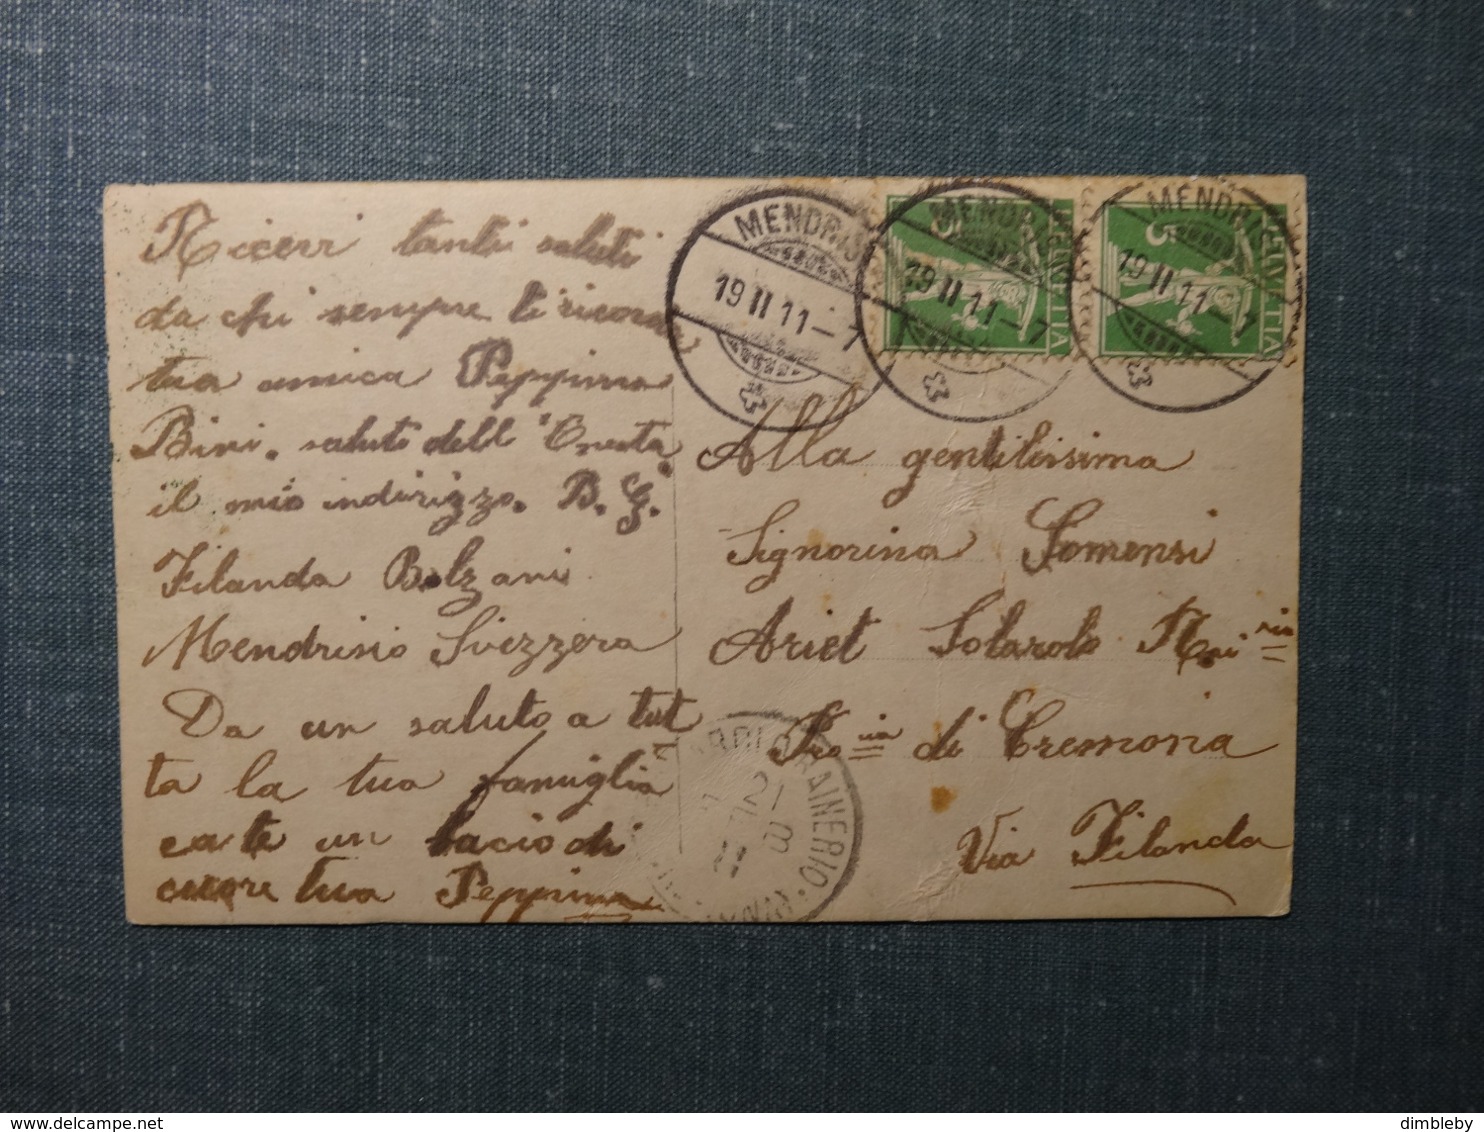 Ricevi tanti saluti
da chi sempre ti ricorda
tua amica Peppina
Bini. saluti dell'Onesta
il mio indirizzo. B. G.
Filanda Bolzani
Mendrisio Svizzera
Da un saluto a tut
ta la tua famiglia
e a te un bacio di
cuore tua Peppina
MENDRIS
19 II 11 – 7
MENDRIS
19 II 11 – 7
MENDRIS
19 II 11 – 7
5
HELVETIA
5
HELVETIA
Alla gentilissima
Signorina Somensi
Ariet Solarolo Rai rio
Pro via di Cremona
Via Filanda
RAINERIO
dimbleby
delcampe.net